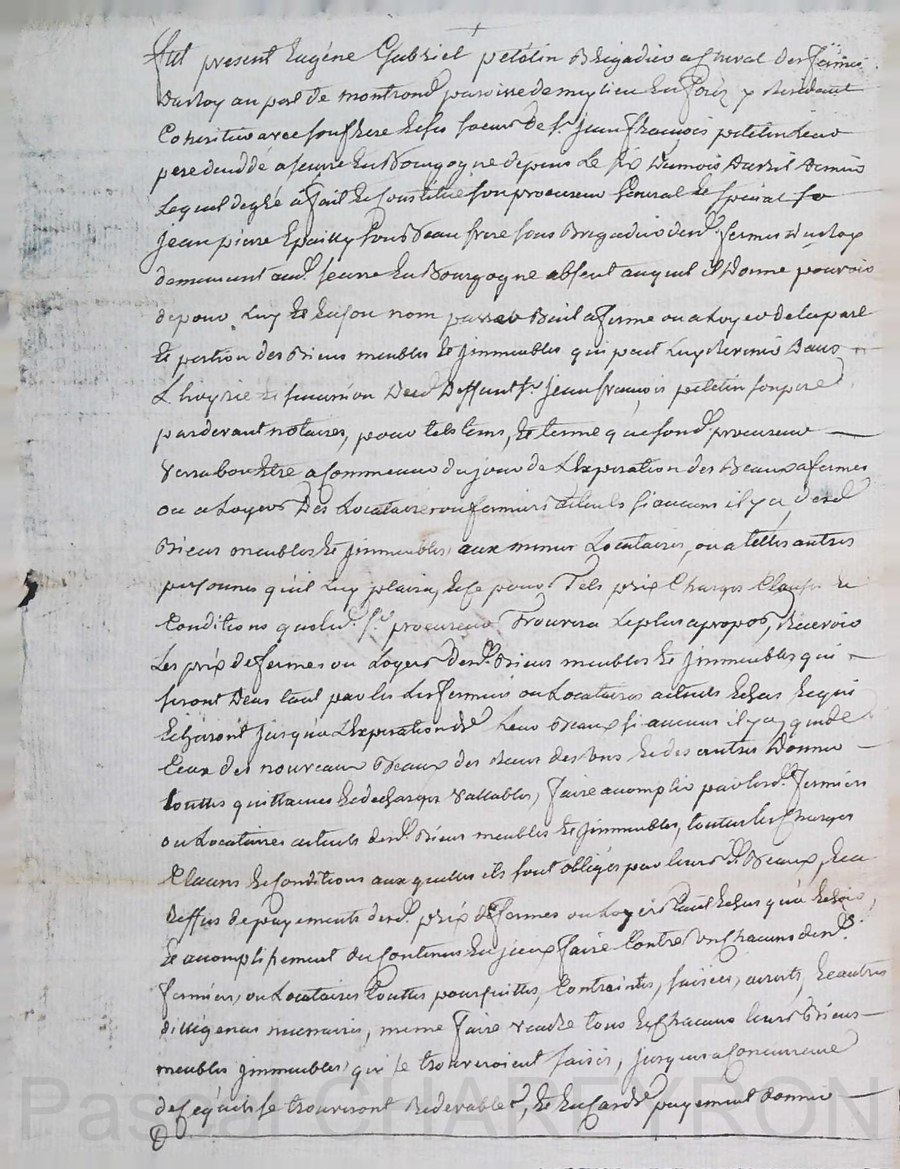 fut present Eugène Gabriel petitin Brigadier a cheval des fermes
du Roy au port de montrond paroisse de meylieu en forez y Residant
Coheritier avec son frere et ses soeurs de Sr. Jean françois petitin leur
pere deceddé a seurre en Bourgogne depuis le six du mois d'avril dernier
Lequel de gré a fait et constitué son procureur General et special Sr
Jean pierre Epailly son Beau frere sous Brigadier desd. fermes du Roy
demeurant aud. seurre en Bourgogne absent auquel il donne pouvoir
de pour luy et en son nom passer Bail a ferme ou a loyer de la part
et portion des Biens meubles et jmmeubles qui peut luy Revenir dans
L'hoyrie et succession dud. deffunt Sr. jean françois petitin son pere
pardevant notaires, pour tels tems, et terme que sond. procureur
verra bon Etre a commencer du jour de L'Expiration des Beaux a fermes
ou a loyers des Locataires ou fermiers actuels si aucuns il y a desd.
Biens meubles et jmmeubles, aux memes Locataires, ou a telles autres
personnes qu'il luy plaira, et ce pour Tels prix Charges Clauses et
Conditions que led. Sr. procureur Trouvera le plus a propos, Recevoir
Les prix de fermes ou Loyers desd. Biens meubles et jmmeubles qui
seront deus tant par les fermiers ou Locataires actuels Echus et qui
Echeront jusqu'a L'Expiration de leur Beaux si aucuns il y a, que de
Ceux des nouveaux Beaux des uns et des autres donner
touttes quittances et decharges vallables, faire acomplir par lesd. fermiers
ou Locataires actuels desd. Biens meubles et jmmeubles, toutes les Charges
Clauses et conditions auxquelles ils sont obligés par leursd. Beaux, Et a
deffaut de payements desd. prix de fermes ou loyers tant Echus qu'a Echoir,
et acomplissement du contenu en jceux faire contre un chacuns desd.
fermiers, ou Locataires touttes poursuittes, Contraintes, saisies, arrets, et autres
dilligences necessaires, meme faire vendre tous et chacuns leurs Biens
meubles jmmeubles qui se trouveroient saisis, jusques a Concurrence
de ce qu'ils se trouveront Redevables, et en cas de payement donner
Pascal CHAREYRON